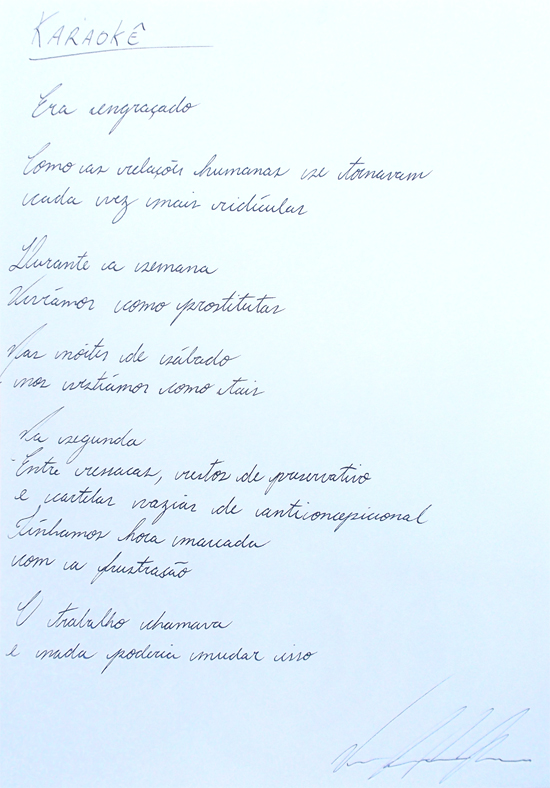 KARAOKÊ
Era engraçado
Como as relações humanas se tornavam
cada vez mais ridículas
Durante a semana
Vivíamos como prostitutas
Nas noites de sábado
nos vestíamos como tais
Na segunda
Entre ressacas, restos de preservativo
e cartelas vazias de anticoncepicional
Tínhamos hora marcada
com a frustração
O trabalho chamava
e nada poderia mudar isso